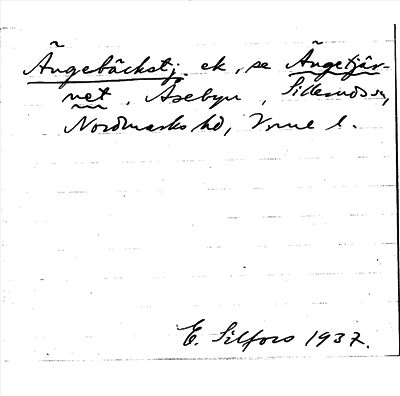 Ängebäckstj. ek, se Ängetjär-
net, Åsebyn, Sillerud sn,
Nordmarks hd, Vrml l.
E. Silfors 1937.